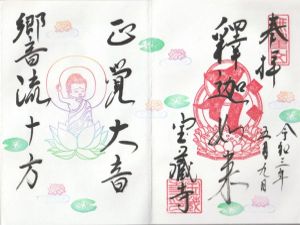 奉拝
釋迦如来
令和三年
五月九日
宝蔵寺
正覺大音
響流十方